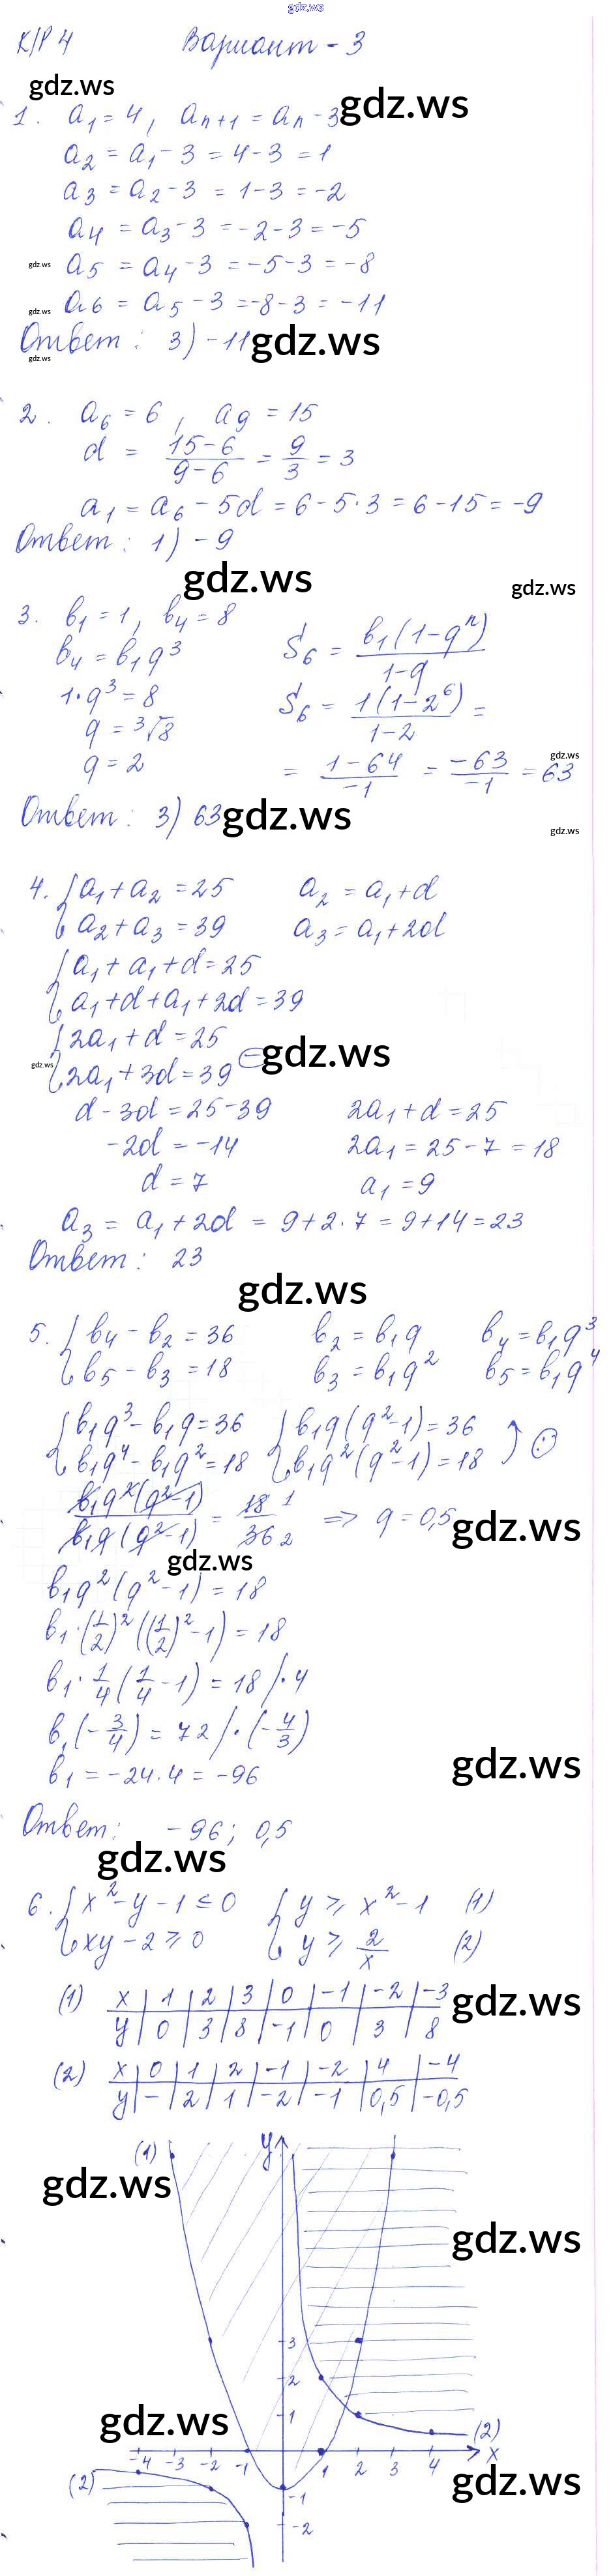 gdz.ws
К/Р 4 Вариант - 3
gdz.ws
1. a₁ = 4, aₙ₊₁ = aₙ - 3 gdz.ws
a₂ = a₁ - 3 = 4 - 3 = 1
a₃ = a₂ - 3 = 1 - 3 = -2
a₄ = a₃ - 3 = -2 - 3 = -5
gdz.ws a₅ = a₄ - 3 = -5 - 3 = -8
gdz.ws a₆ = a₅ - 3 = -8 - 3 = -11
Ответ: 3) -11 gdz.ws
gdz.ws
2. a₆ = 6, a₉ = 15
d = (15-6)/(9-6) = 9/3 = 3
a₁ = a₆ - 5d = 6 - 5·3 = 6 - 15 = -9
Ответ: 1) -9
gdz.ws gdz.ws
3. b₁ = 1, b₄ = 8
b₄ = b₁q³ S₆ = b₁(1-qⁿ)/(1-q)
1·q³ = 8 S₆ = 1(1-2⁶)/(1-2) =
q = ³√8
q = 2 = (1-64)/(-1) = -63/-1 = 63
gdz.ws
Ответ: 3) 63 gdz.ws
gdz.ws
4. { a₁ + a₂ = 25 a₂ = a₁ + d
a₂ + a₃ = 39 a₃ = a₁ + 2d
{ a₁ + a₁ + d = 25
a₁ + d + a₁ + 2d = 39
{ 2a₁ + d = 25
gdz.ws 2a₁ + 3d = 39 ⊖ gdz.ws
d - 3d = 25 - 39 2a₁ + d = 25
-2d = -14 2a₁ = 25 - 7 = 18
d = 7 a₁ = 9
a₃ = a₁ + 2d = 9 + 2·7 = 9 + 14 = 23
Ответ: 23
gdz.ws
5. { b₄ - b₂ = 36 b₂ = b₁q b₄ = b₁q³
b₅ - b₃ = 18 b₃ = b₁q² b₅ = b₁q⁴
{ b₁q³ - b₁q = 36 { b₁q(q²-1) = 36
b₁q⁴ - b₁q² = 18 b₁q²(q²-1) = 18 :
b₁q²(q²-1)/b₁q(q²-1) = 18 1/36 2 => q = 0,5
gdz.ws
gdz.ws
b₁q²(q²-1) = 18
b₁·(1/2)²((1/2)²-1) = 18
b₁·1/4(1/4-1) = 18 /·4
b₁(-3/4) = 72 /·(-4/3)
b₁ = -24·4 = -96
gdz.ws
Ответ: -96; 0,5
gdz.ws
6. { x² - y - 1 ≤ 0 { y ≥ x² - 1 (1)
xy - 2 ≥ 0 y ≥ 2/x (2)
(1) x | 1 | 2 | 3 | 0 | -1 | -2 | -3
y | 0 | 3 | 8 | -1 | 0 | 3 | 8
gdz.ws
(2) x | 0 | 1 | 2 | -1 | -2 | 4 | -4
y | - | 2 | 1 | -2 | -1 | 0,5 | -0,5
(1) y
gdz.ws
gdz.ws
3
2
1
gdz.ws
(2)
-4 -3 -2 -1 1 2 3 4 x
(2) gdz.ws
-1
-2